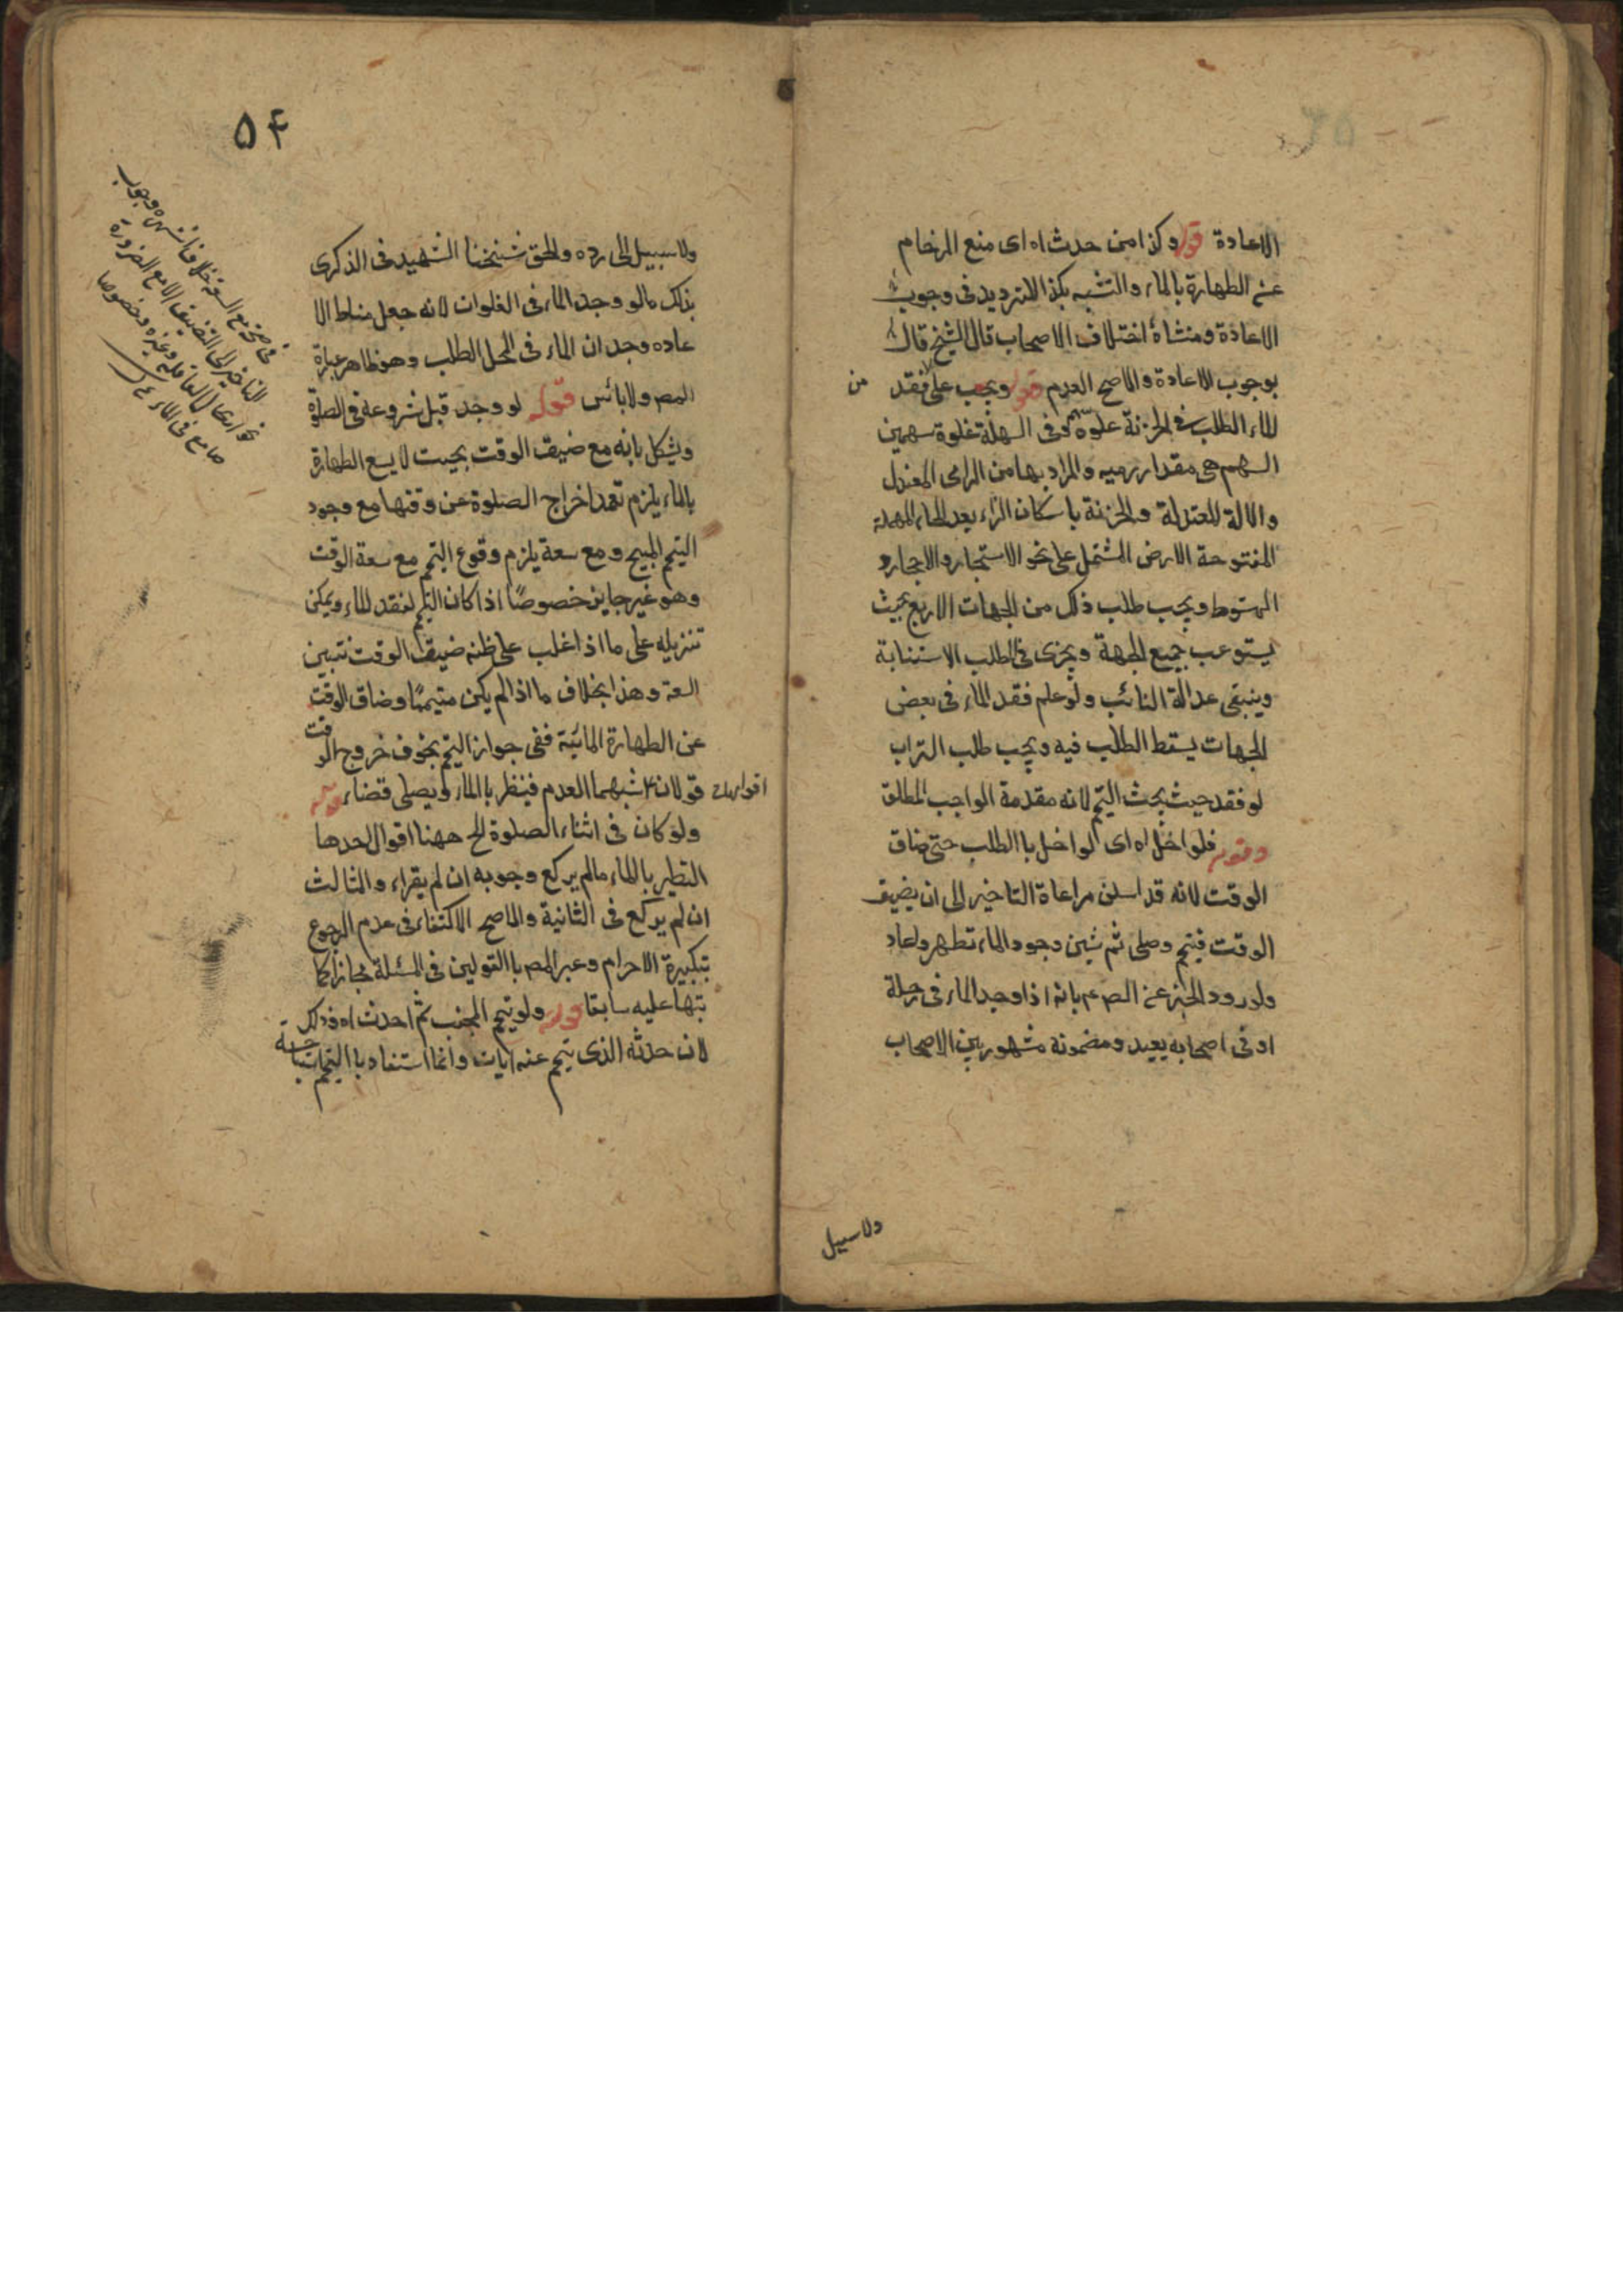 الاعادة قوله وكذا من حدث اه اى منع الزحام
عن الطهارة بالماء والتشبه بكذا للترديد فى وجوب
الاعادة ومنشاهٔ اختلاف الاصحاب قال الشيخ قال
بوجوب الاعادة والاصح العدم قوله ويجب على فقد من
الماء الطلب فى الحزنة غلوة سهم وفى السهلة غلوة سهمين
السهم هى مقدار رميه والمراد بها من الرامى المعتدل
والالة المعتدلة والحزنة باسكان الزاء بعد الحاء المهملة
المفتوحة الارض المشتمل على نحو الاستجار والاحجار و
الهبوط ويجب طلب ذلك من الجهات الاربع بحيث
يستوعب جميع الجهة ويجزى فى الطلب الاستنابة
وينبغى عدالة النائب ولو علم فقد الماء فى بعض
الجهات يسقط الطلب فيه ويجب طلب التراب
لو فقد حيث يجب التيمم لانه مقدمة الواجب المطلق
وقوله فلو اخل اه اى لو اخل باالطلب حتى ضاق
الوقت لانه قد اسلف مراعاة التاخير الى ان يضيق
الوقت فيتمم وصلى ثم تبين وجود الماء تطهر واعاد
ولورود الخبر عن الصم بانه اذا وجد الماء فى رحلة
او فى اصحابه يعيد ومضمونه مشهور بين الاصحاب
ولا سبيل
۵۴
ولا سبيل الى رده والحق شيخنا الشهيد فى الذكرى
بذلك مالو وجد الماء فى الغلوات لانه جعل مناط الا
عاده وجدان الماء فى المحل الطلب وهو ظاهر عبارة
المص ولا بائس قوله لو وجد قبل شروعه فى الصلوة
ويشكل بانه مع ضيق الوقت بحيث لا يسع الطهارة
بالماء يلزم تعمد اخراج الصلوة عن وقتها مع وجود
التيمم المبيح ومع سعة يلزم وقوع التيمم مع سعة الوقت
وهو غير جايز خصوصًا اذا كان التيمم لفقد الماء ويمكن
تنزيله على ما اذا غلب على ظنه ضيق الوقت فتبين
السعة وهذا بخلاف ما اذا لم يكن متيممًا وضاق الوقت
عن الطهارة المائية ففى جواز التيمم بخوف خروج الوقت
قولان اشبهما العدم فينظر باالماء ويصلى قضاء قوله
ولو كان فى اثناء الصلوة الخ ههنا اقوال احدها
التطهير بالماء مالم يركع وجوبه ان لم يقراء والثالث
ان لم يركع فى الثانية والاصح الاكتفاء فى عدم الرجوع
بتكبيرة الاحرام وعبر المص باالقولين فى المسئلة مجازا كما
نبها عليه سابقا قوله ولو تيمم المجنب ثم احدث اه وذلك
لان حدثه الذى تيمم عنه وانما استفاد باالتيمم